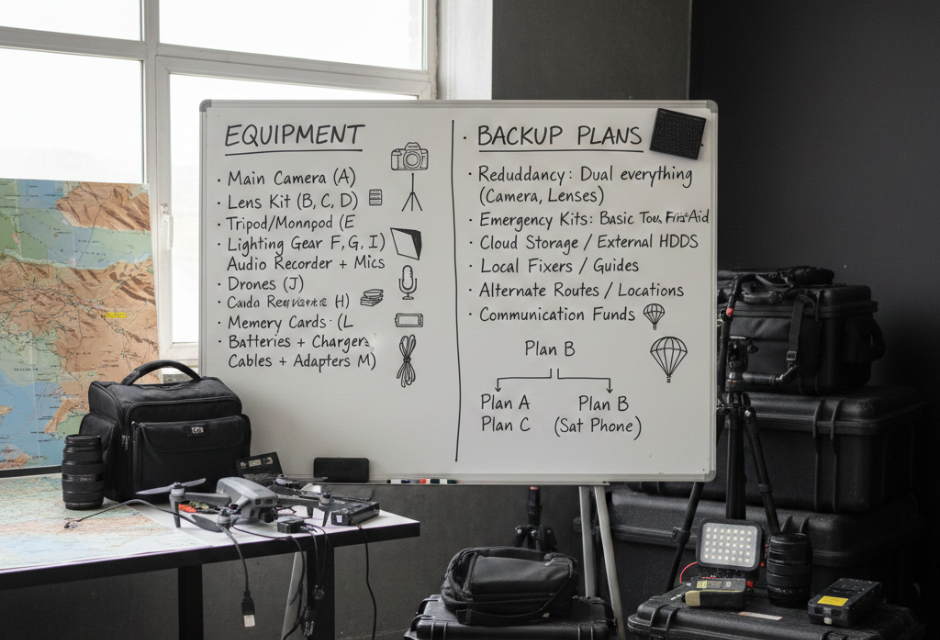 EQUIPMENT
· Main Camera (A)
· Lens Kit (B, C, D)
· Tripod/Monnpod (E
· Lighting Gear F, G, I)
Audio Recorder + Mics
· Drones (J)
H)
· Memory Cards · (L
· Batteries + Chargers
Cables + Adapters M)
· BACKUP PLANS
· Reduddancy: Dual everything
(Camera, Lenses)
· Emergency Kits: Basic Aid
· Cloud Storage / External HDDS
· Local Fixers / Guides
· Alternate Routes / Locations
· Communication Funds
Plan B
Plan A Plan B
Plan C (Sat Phone)